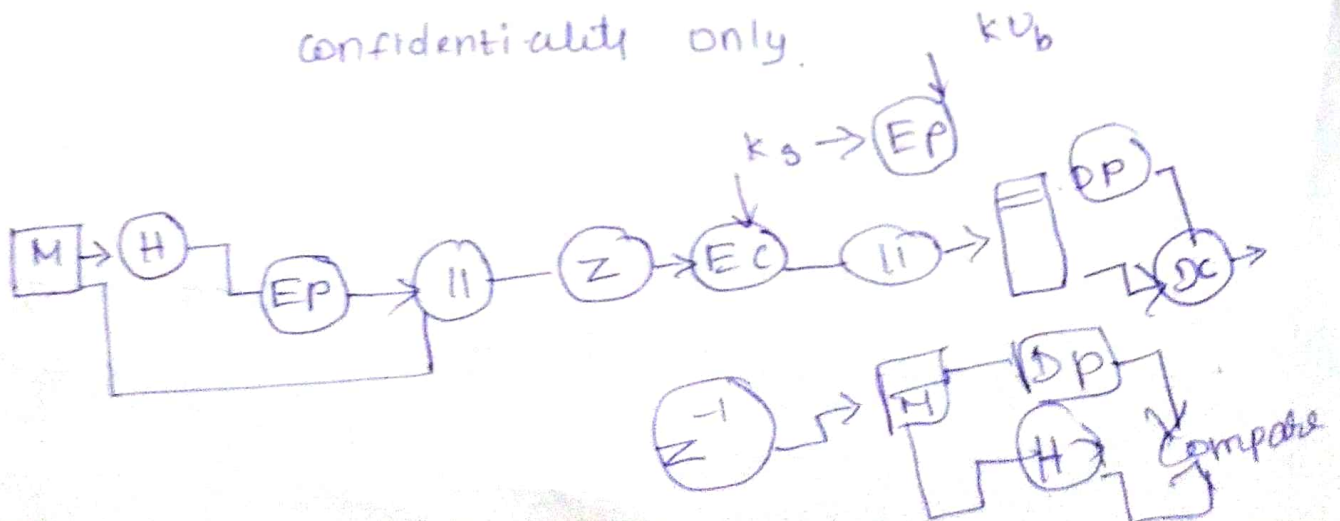 confidentiality only.
KUb
Ks → EP
DP
M → H
EP → || Z → EC || → DC
Z⁻¹ → M DP
H Compare